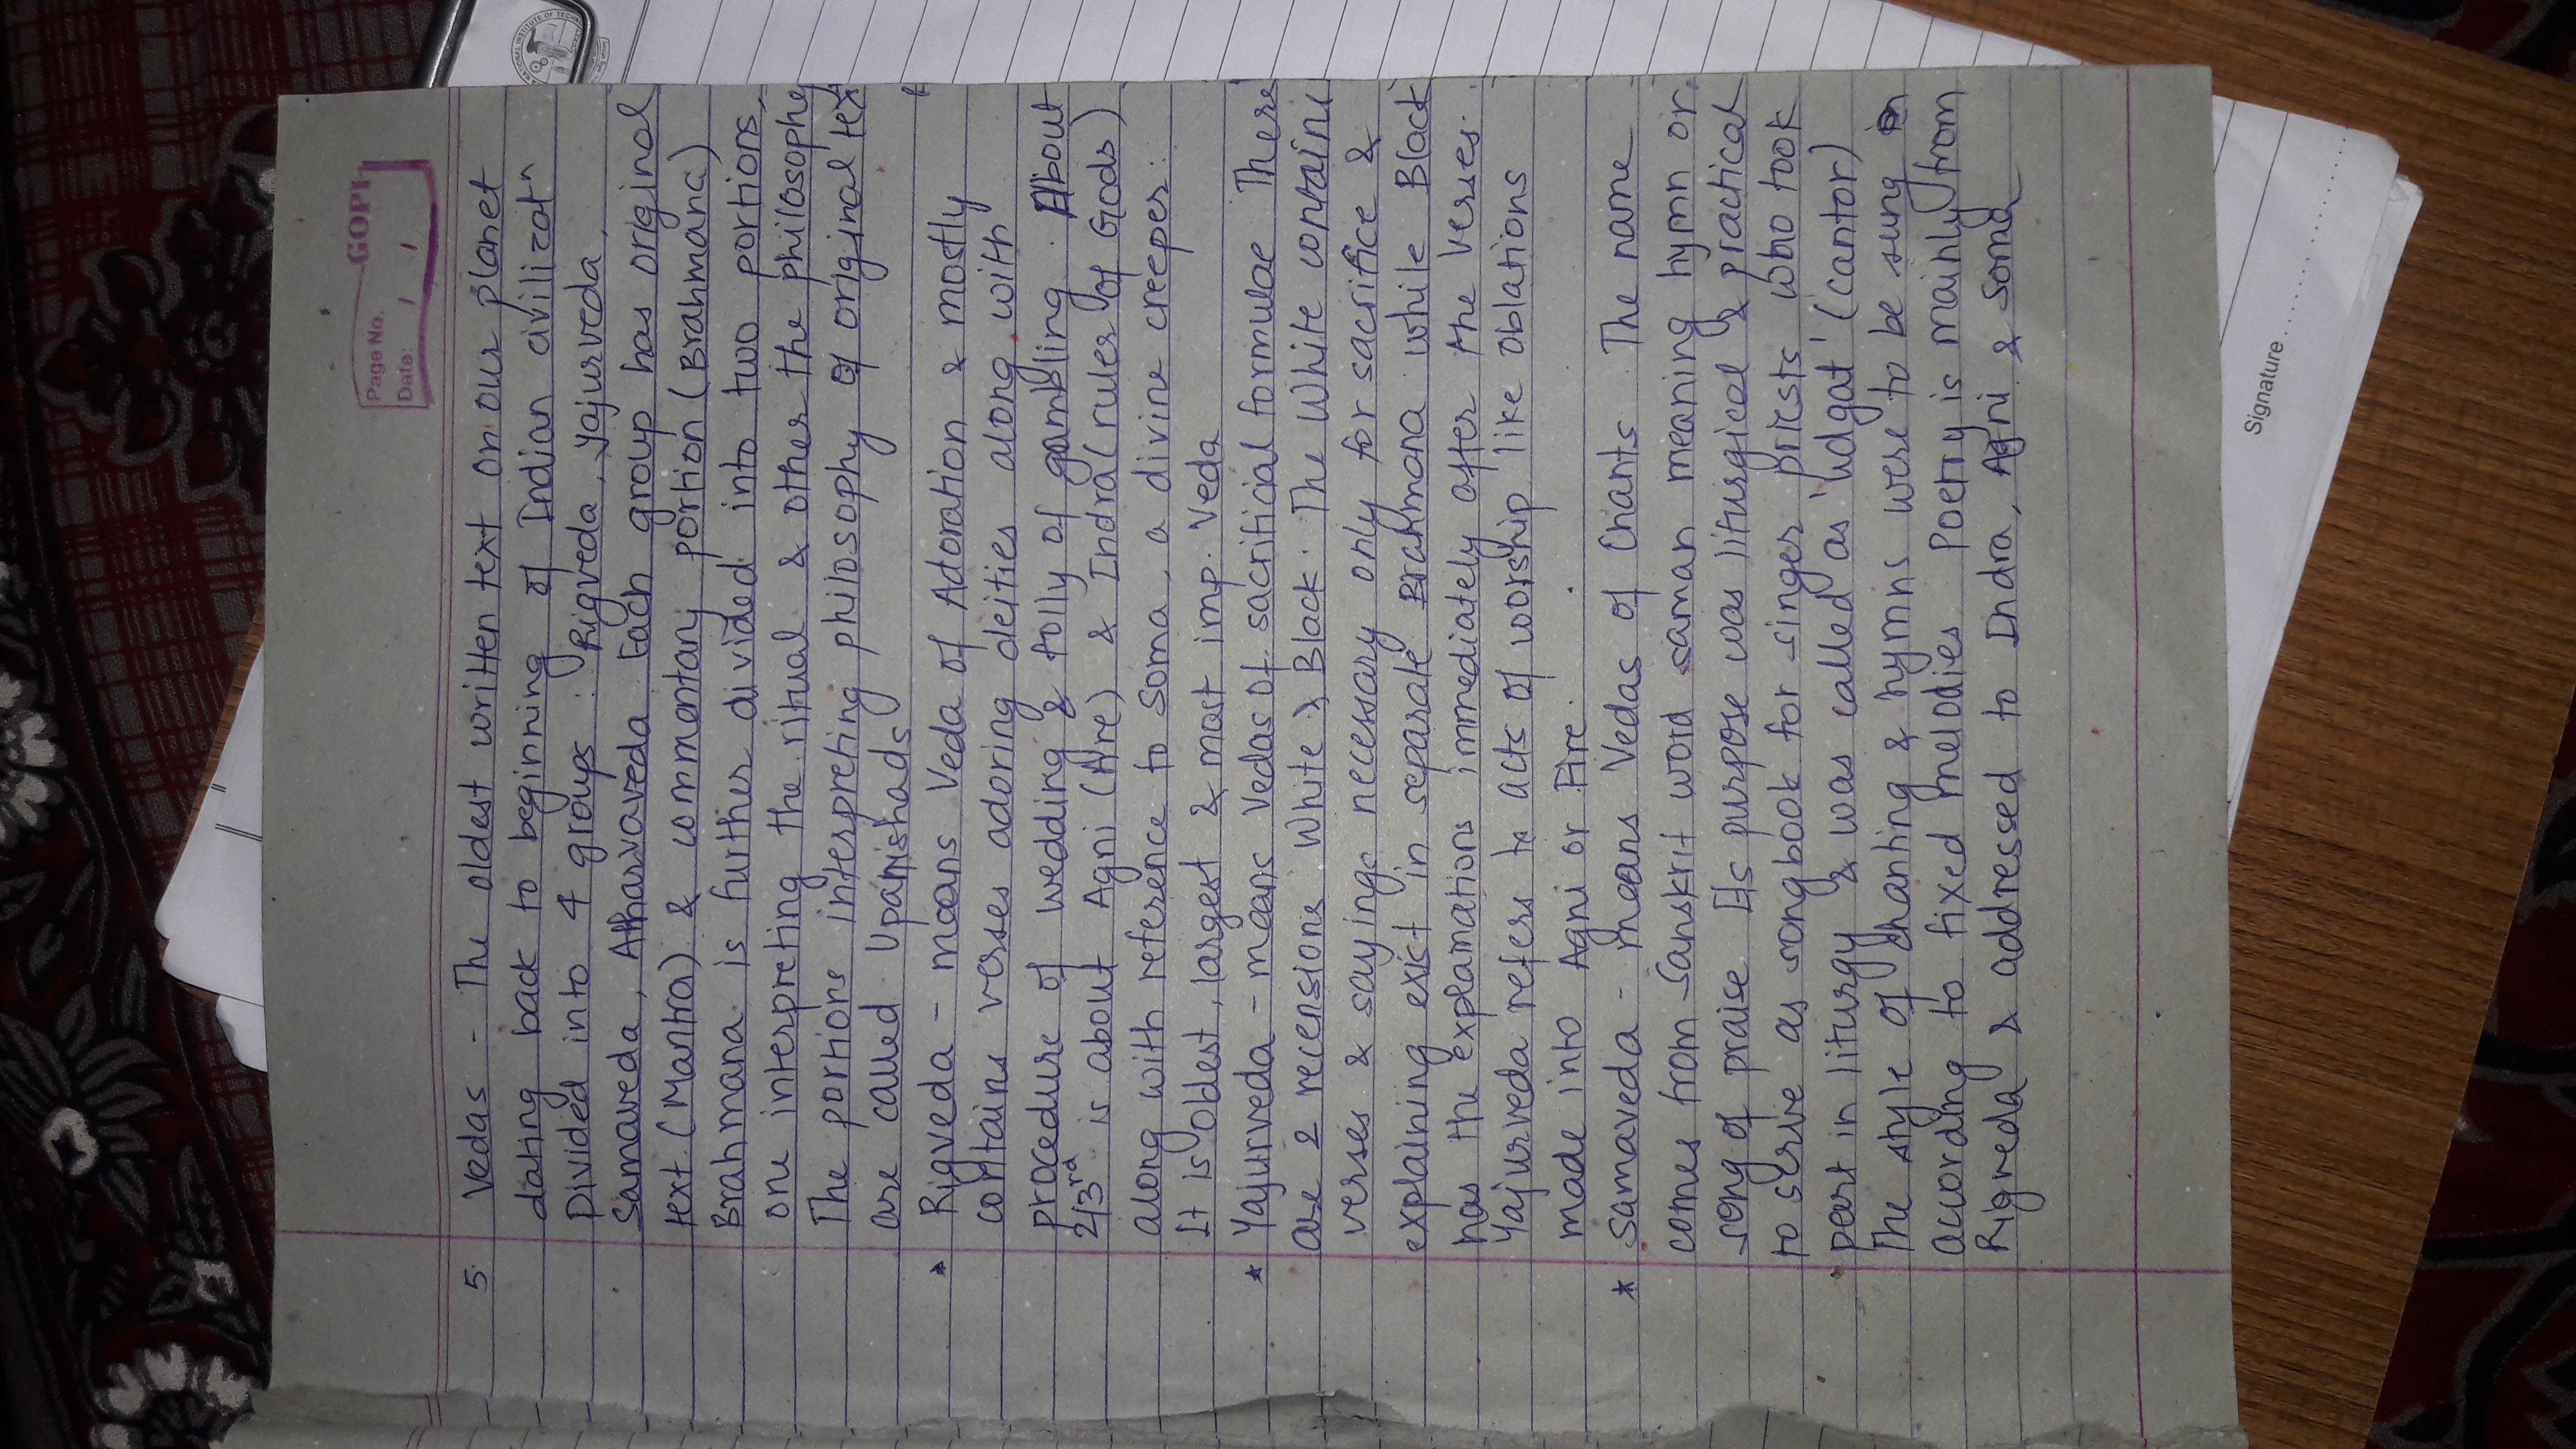 GOPI
Page No.
Date: / /
5. Vedas - The oldest written text on our planet
dating back to beginning of Indian civilizatn
Divided into 4 groups : Rigveda, Yajurveda,
Samaveda, Atharvaveda. Each group has original
text (Mantra) & commentary portion (Brahmana)
Brahmana is further divided into two portions,
one interpreting the ritual & other the philosophy
The portions interpreting philosophy of original tex
are called Upanishads
* Rigveda - means Veda of Adoration & mostly
contains verses adoring deities along with
procedure of wedding & folly of gambling. About
2/3rd is about Agni (Fire) & Indra (ruler of Gods)
along with reference to Soma, a divine creeper.
It is oldest, largest & most imp. Veda
* Yajurveda - means Vedas of sacrificial formulae There
are 2 recensions White & Black. The White contains
verses & sayings necessary only for sacrifice &
explaining exist in separate Brahmana while Black
has the explanations immediately after the verses.
Yajurveda refers to acts of worship like oblations
made into Agni or Fire.
* Samaveda - means Vedas of Chants The name
comes from Sanskrit word saman meaning hymn or
song of praise. Its purpose was liturgical & practical
to serve as songbook for singer priests who took
part in liturgy & was called as 'udgat' (cantor)
The style of chanting & hymns were to be sung
according to fixed melodies Poetry is mainly from
Rigveda & addressed to Indra, Agni & Soma
Signature